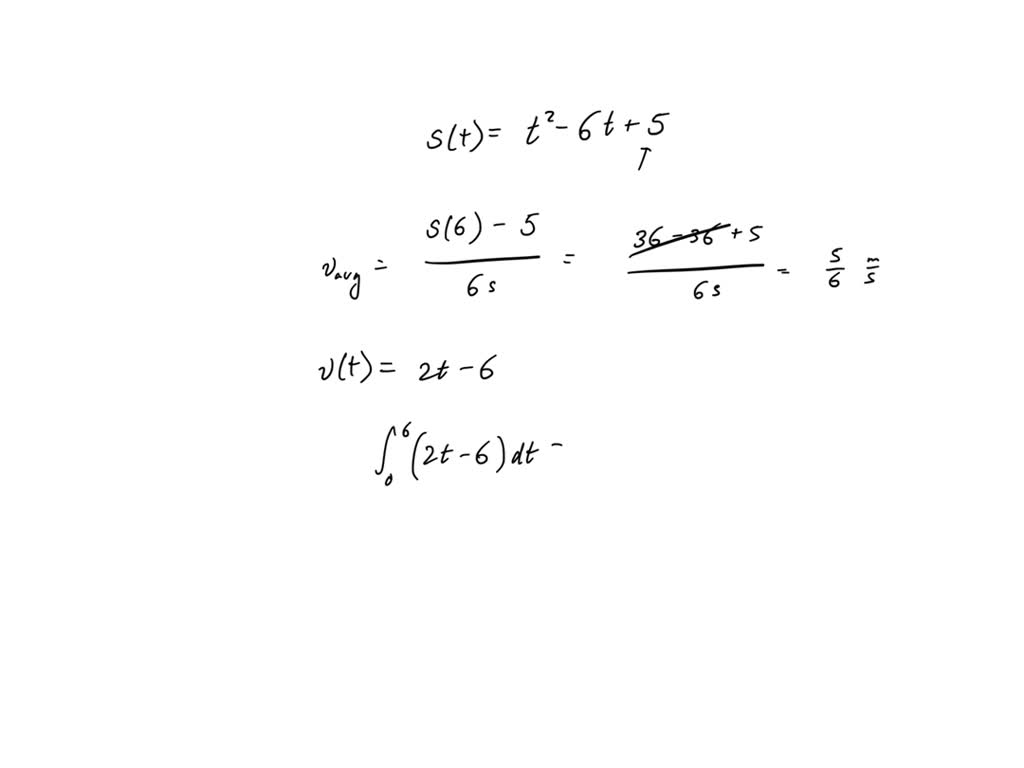 s(t) = t² - 6t + 5
↑
v_avg = (s(6) - 5) / (6 s) = (36 - 36 + 5) / (6 s) = 5/6 m/s
v(t) = 2t - 6
∫₀⁶ (2t - 6) dt =